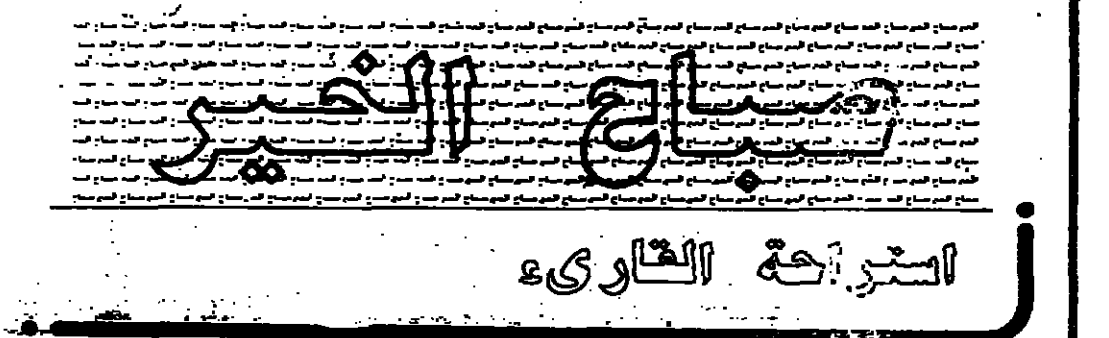 صباح الخير
استراحة القارىء